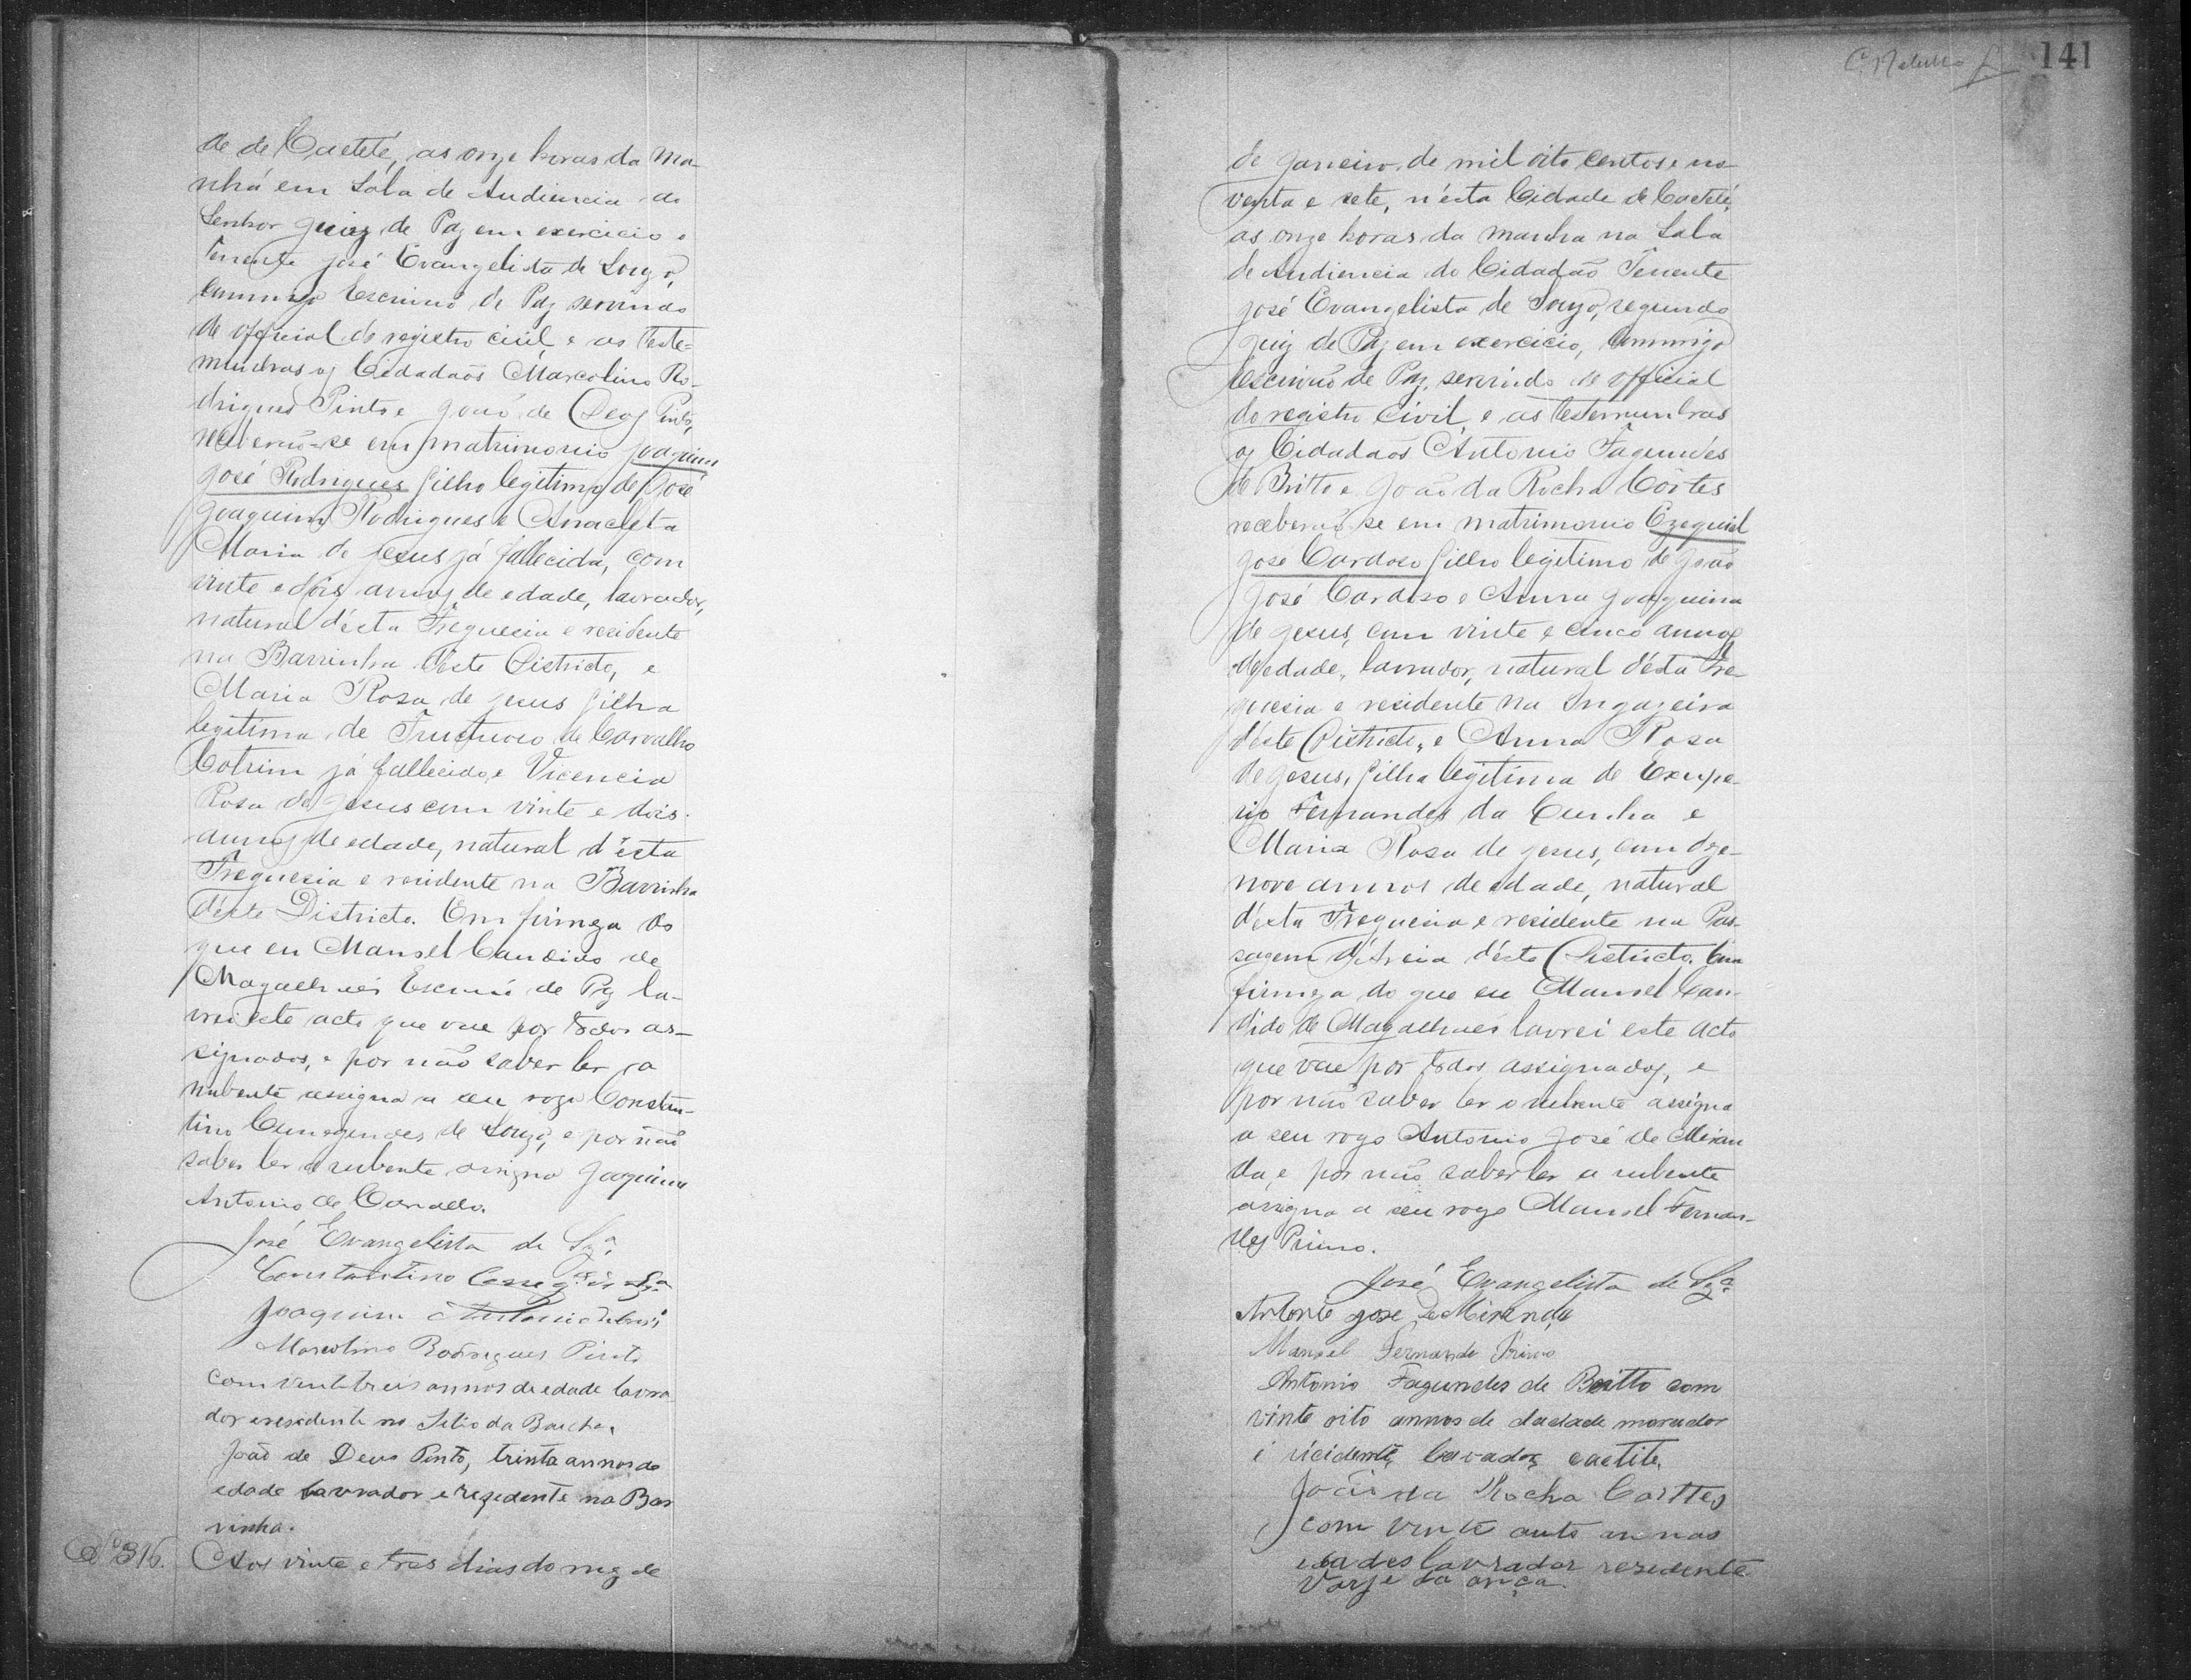 de de Caeteté, as onze horas da ma-
nhá em Sala de Audiencia do
Senhor Juiz de Paz em exercicio o
Tenente José Evangelista de Souza,
commigo Escrivaõ de Paz servindo
de official do registro civil, e as teste-
munhas os Cidadaõs Marcolino Ro-
drigues Pinto e Joaõ de Deos Pinto,
receberaõ-se em matrimonio Joaquim
José Rodrigues filho legitimo de José
Joaquim Rodrigues e Anacleta
Maria de Jesus já fallecida, com
vinte e dois annos de edade, lavrador,
natural d'ésta Freguesia e residente
na Barrinha d'éste Districto, e
Maria Rosa de Jesus filha
legitima de Fructuoso de Carvalho
Cotrim já fallecido, e Vicencia
Rosa de Jesus com vinte e dois
annos de edade, natural d'ésta
Freguesia e residente na Barrinha
d'éste Districto. Em firmeza do
que eu Manoel Candido de
Magalhães Escrivaõ de Paz la-
vrei este acto que vae por todos as-
signados, e por não saber ler o
nubente assigna a seu rogo Constan-
tino Cunegundes de Souza, e por naõ
saber ler a nubente assigna Joaquim
Antonio de Carvalho.
José Evangelista de Sz.ª
Constantino de Sz.ª
Joaquim Antonio
Marcolino Rodrigues Pinto
com vinte treis annos de edade lavra
dor e residente no Sitio da
João de Deus Pinto, trinta annos de
edade lavrador e rezedente na Bar
rinha.
Nº 316. Aos vinte e tres dias do mez de
141
de Janeiro de mil oito centos e no-
venta e sete, n'ésta Cidade de Caeteté,
as onze horas da manha na Sala
de Audiencia do Cidadaõ Tenente
José Evangelista de Souza, segundo
Juiz de Paz em exercicio, commigo
Escrivaõ de Paz, servindo de official
do registro civil, e as testemunhas
os Cidadaõs Antonio Fagundes
de Britto e Joaõ da Rocha Côrtes
receberaõ-se em matrimonio Ezequiel
José Cardoso filho legitimo de Joaõ
José Cardoso e Anna Joaquina
de Jesus, com vinte e cinco annos
de edade, lavrador, natural d'ésta Fre-
guesia e residente na Ingazeira
d'éste Districto, e Anna Rosa
de Jesus, filha legitima de Exupe-
rio Fernandes da Cunha e
Maria Rosa de Jesus, com deze-
nove annos de edade, natural
d'ésta Freguesia e residente na Pas-
sagem d'Areia d'éste Districto. Em
firmeza do que eu Manoel Can-
dido de Magalhaes lavrei este acto
que vae por todos assignados, e
por naõ saber ler o nubente assigna
a seu rogo Antonio José de Miran
da, e por naõ saber ler a nubente
assigna a seu rogo Manoel Fernan-
des Primo.
José Evangelista de Sz.ª
Antonio jose de Miranda
Manoel Fernande Primo
Antonio Fagundes de Britto com
vinte oito annos de dadade morador
e ricidente lavador caetite.
Joãi da Rocha Corttes
com vinte auto annos
edades lavrador resedente
Varje da onça.